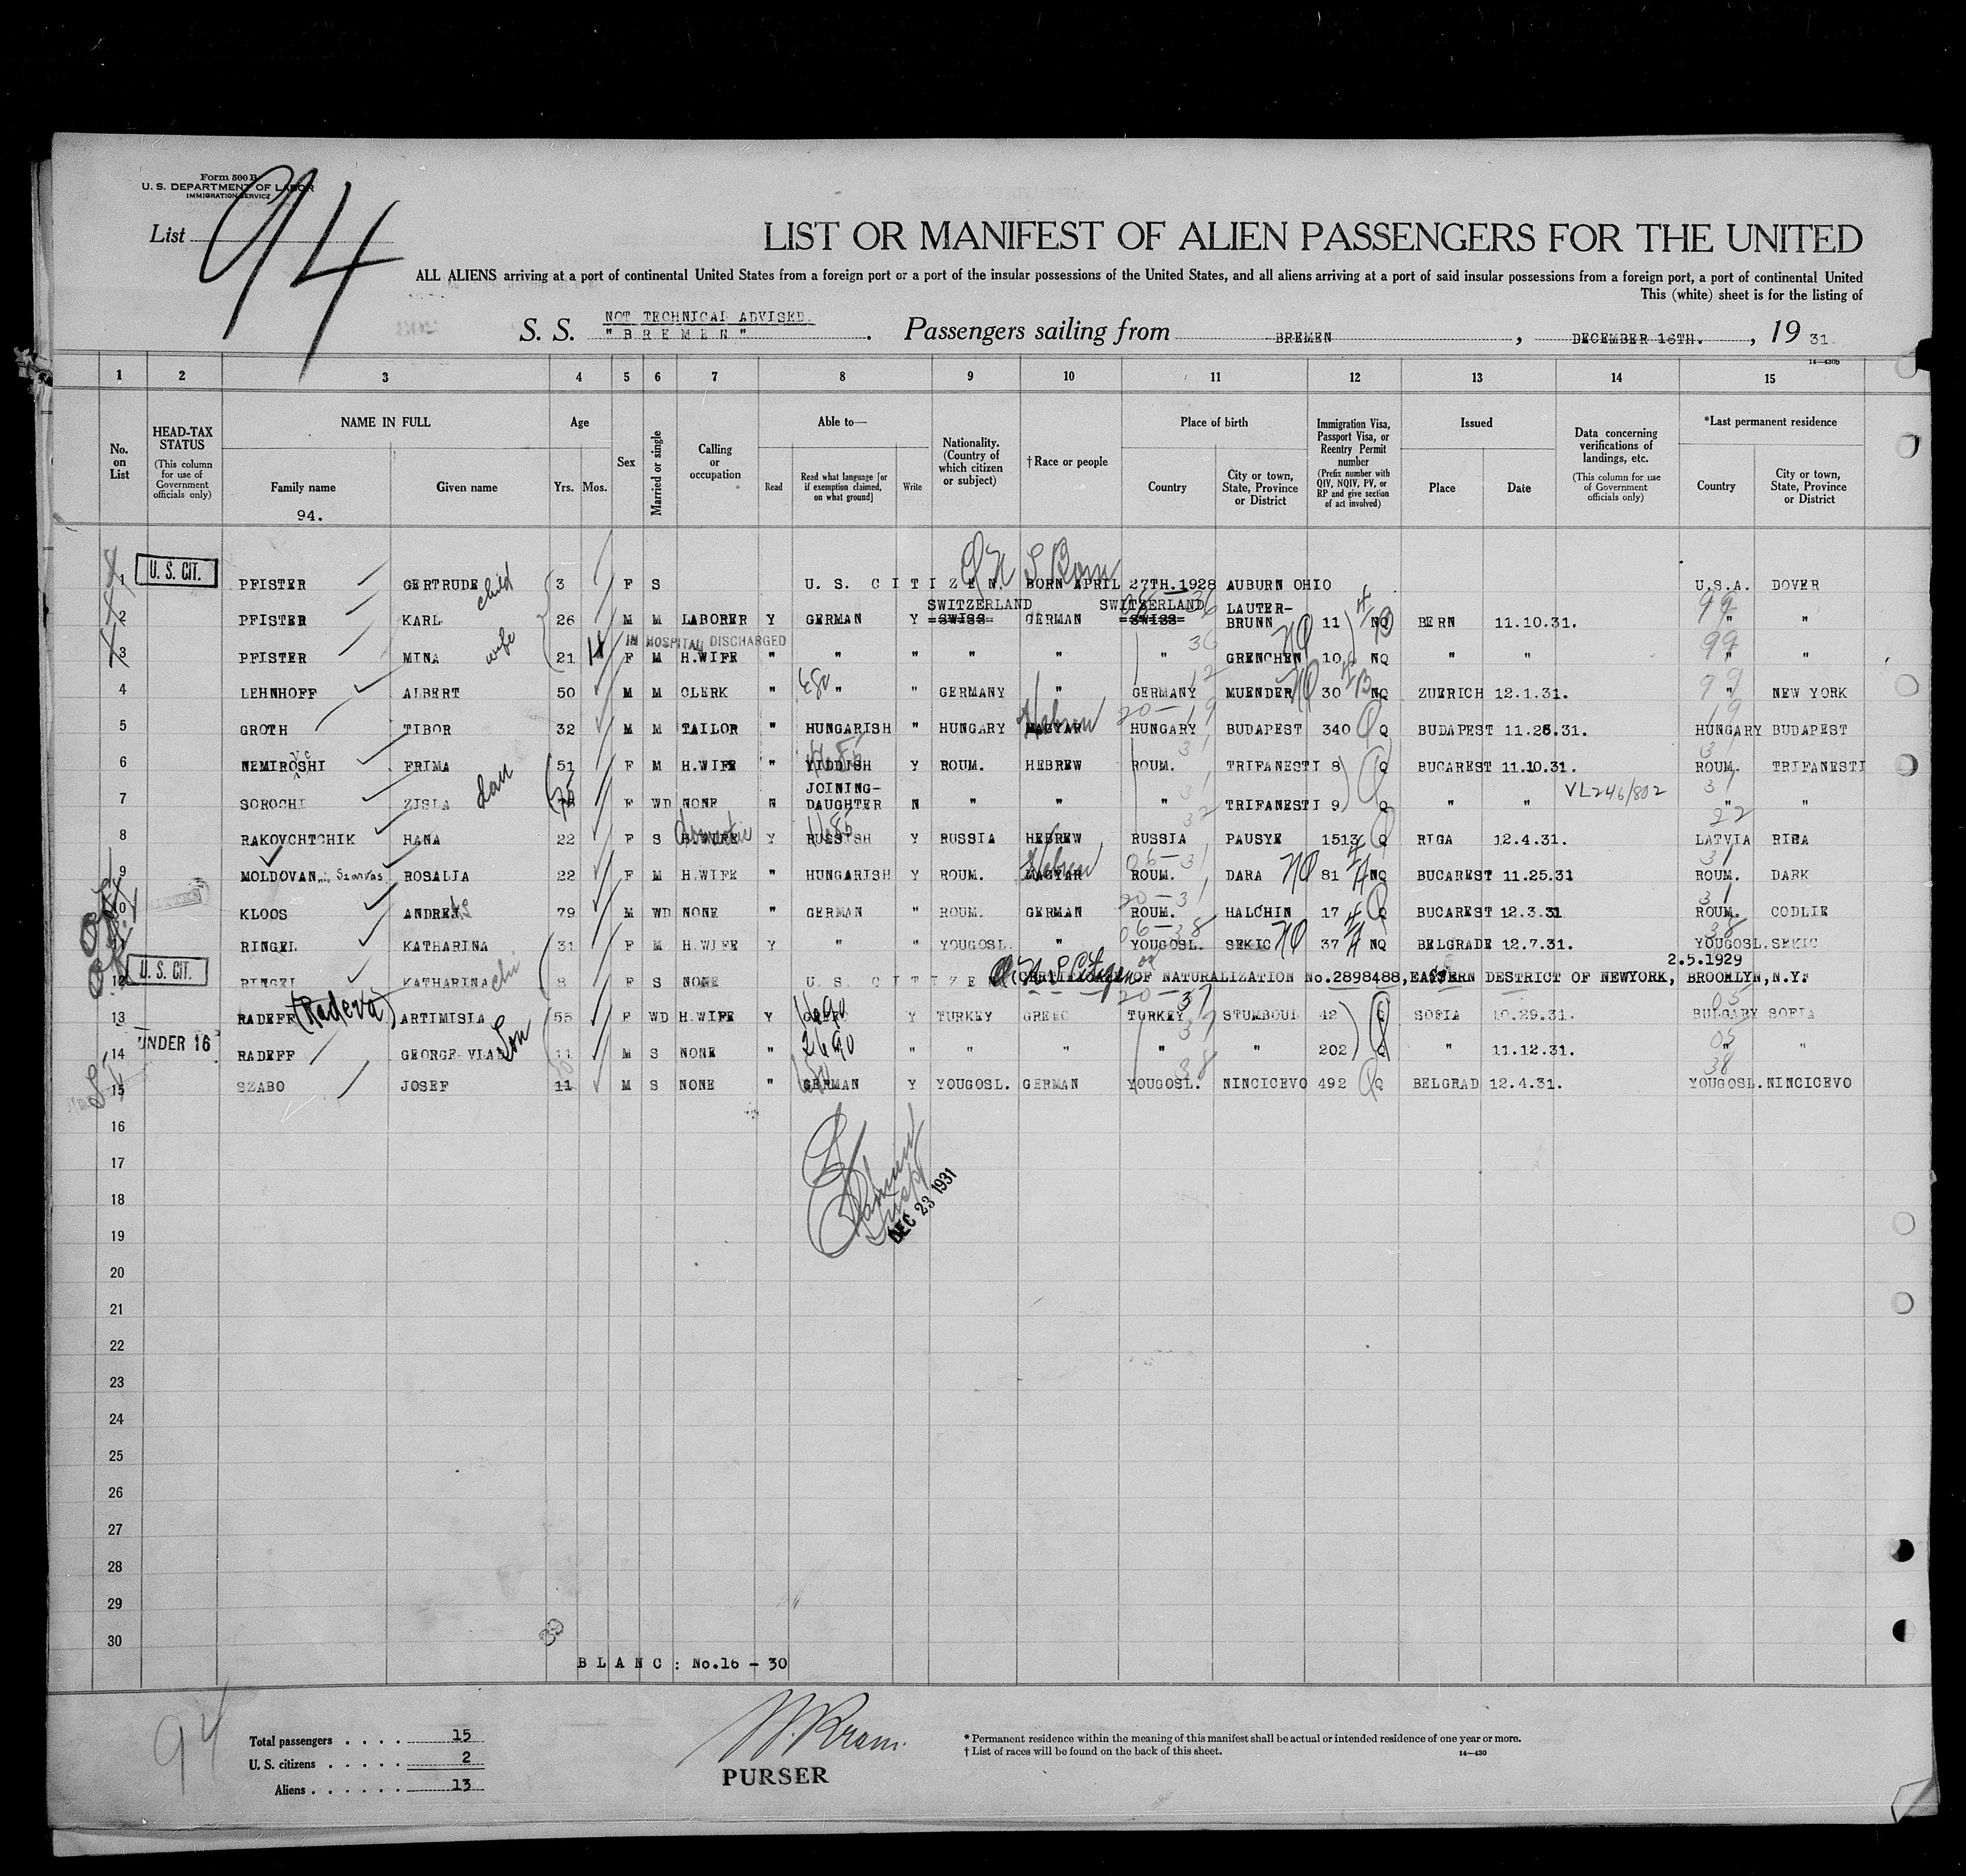 Form 500 B
U. S. DEPARTMENT OF LABOR
IMMIGRATION SERVICE
List 94
LIST OR MANIFEST OF ALIEN PASSENGERS FOR THE UNITED
ALL ALIENS arriving at a port of continental United States from a foreign port or a port of the insular possessions of the United States, and all aliens arriving at a port of said insular possessions from a foreign port, a port of continental United
This (white) sheet is for the listing of
NOT TECHNICAL ADVISED.
S. S. "BREMEN". Passengers sailing from BREMEN, DECEMBER 16TH., 19 31.
14—430b
1 2 3 4 5 6 7 8 9 10 11 12 13 14 15
No. on List
HEAD-TAX STATUS (This column for use of Government officials only)
NAME IN FULL
Family name
Given name
94.
Age
Yrs. Mos.
Sex
Married or single
Calling or occupation
Able to—
Read
Read what language [or if exemption claimed, on what ground]
Write
Nationality. (Country of which citizen or subject)
†Race or people
Place of birth
Country
City or town, State, Province or District
Immigration Visa, Passport Visa, or Reentry Permit number (Prefix number with QIV, NQIV, PV, or RP and give section of act involved)
Issued
Place
Date
Data concerning verifications of landings, etc. (This column for use of Government officials only)
*Last permanent residence
Country
City or town, State, Province or District
1 U. S. CIT. PFISTER GERTRUDE child 3 F S U. S. CITIZEN, BORN APRIL 27TH.1928 AUBURN OHIO U.S.A. DOVER
SWITZERLAND SWITZERLAND
2 PFISTER KARL 26 M M LABORER Y GERMAN Y SWISS GERMAN SWISS LAUTER-BRUNN 11 NQ BERN 11.10.31. 99 " "
IN HOSPITAL DISCHARGED
3 PFISTER MINA wife 21 F M H.WIFE " " " " " " GRENCHEN 10 NQ " " 99 " "
4 LEHNHOFF ALBERT 50 M M CLERK " " " GERMANY " GERMANY MUENDER 30 NQ ZUERICH 12.1.31. 99 " NEW YORK
5 GROTH TIBOR 32 M M TAILOR " HUNGARISH " HUNGARY MAGYAR Hebrew HUNGARY BUDAPEST 340 Q BUDAPEST 11.25.31. HUNGARY BUDAPEST
6 NEMIROSHI FRIMA 51 F M H.WIFE " YIDDISH Y ROUM. HEBREW ROUM. TRIFANESTI 8 Q BUCAREST 11.10.31. ROUM. TRIFANESTI
7 SOROCHI ZISLA F WD NONE N JOINING-DAUGHTER N " " " TRIFANESTI 9 Q " " VL246/802 " "
8 RAKOVCHTCHIK HANA 22 F S H.WIFE Domestic Y RUSSISH Y RUSSIA HEBREW RUSSIA PAUSYE 1513 Q RIGA 12.4.31. LATVIA RIGA
9 MOLDOVAN Szarvas ROSALIA 22 F M H.WIFE " HUNGARISH Y ROUM. MAGYAR Hebrew ROUM. DARA 81 NQ BUCAREST 11.25.31 ROUM. DARK
10 KLOOS ANDREAS 79 M WD NONE " GERMAN " ROUM. GERMAN ROUM. HALCHIN 17 Q BUCAREST 12.3.31 ROUM. CODLIE
11 RINGEL KATHARINA 31 F M H.WIFE Y " " YOUGOSL. " YOUGOSL. SEKIC 37 NQ BELGRADE 12.7.31. YOUGOSL. SEKIC
2.5.1929
12 U. S. CIT. RINGEL KATHARINA 8 F S NONE U. S. CITIZEN CERTIFICATE OF NATURALIZATION No.2898488, EASTERN DESTRICT OF NEWYORK, BROOKLYN,N.Y.
13 RADEFF (Radeva) ARTIMISIA 55 F WD H.WIFE Y GREEK Y TURKEY GREEC TURKEY STUMBOUL 42 Q SOFIA 10.29.31. BULGARY SOFIA
14 UNDER 16 RADEFF GEORGE VLAD Son 11 M S NONE " 2690 " " " " " 202 Q " 11.12.31. " "
15 SZABO JOSEF 11 M S NONE " GERMAN Y YOUGOSL. GERMAN YOUGOSL. NINCICEVO 492 Q BELGRAD 12.4.31. YOUGOSL. NINCICEVO
16
17
18
DEC 23 1931
19
20
21
22
23
24
25
26
27
28
29
30
BLANC: No.16 - 30
94
Total passengers . . . . 15
U. S. citizens . . . . . 2
Aliens . . . . . . 13
PURSER
* Permanent residence within the meaning of this manifest shall be actual or intended residence of one year or more.
† List of races will be found on the back of this sheet.
14—430